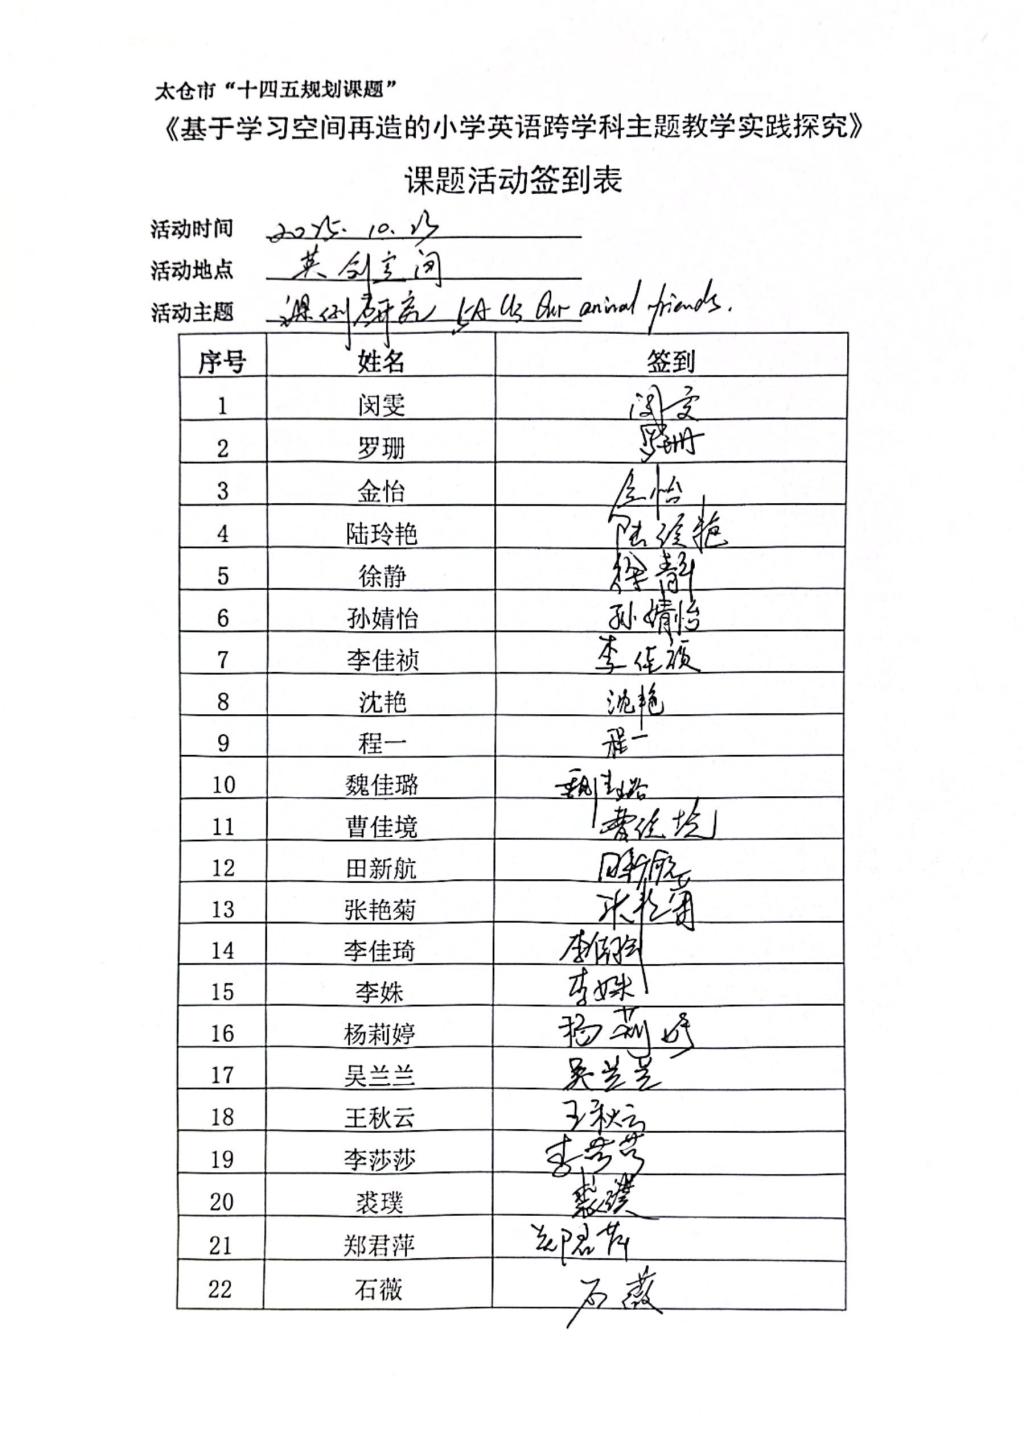 太仓市“十四五规划课题”
《基于学习空间再造的小学英语跨学科主题教学实践探究》
课题活动签到表
活动时间 2025.10.23
活动地点 英创空间
活动主题 课例研究 5A U3 Our animal friends.
序号 姓名 签到
1 闵雯 闵雯
2 罗珊 罗珊
3 金怡 金怡
4 陆玲艳 陆玲艳
5 徐静 徐静
6 孙婧怡 孙婧怡
7 李佳祯 李佳祯
8 沈艳 沈艳
9 程一 程一
10 魏佳璐 魏佳璐
11 曹佳境 曹佳境
12 田新航 田新航
13 张艳菊 张艳菊
14 李佳琦 李佳琦
15 李姝 李姝
16 杨莉婷 杨莉婷
17 吴兰兰 吴兰兰
18 王秋云 王秋云
19 李莎莎 李莎莎
20 裘璞 裘璞
21 郑君萍 郑君萍
22 石薇 石薇